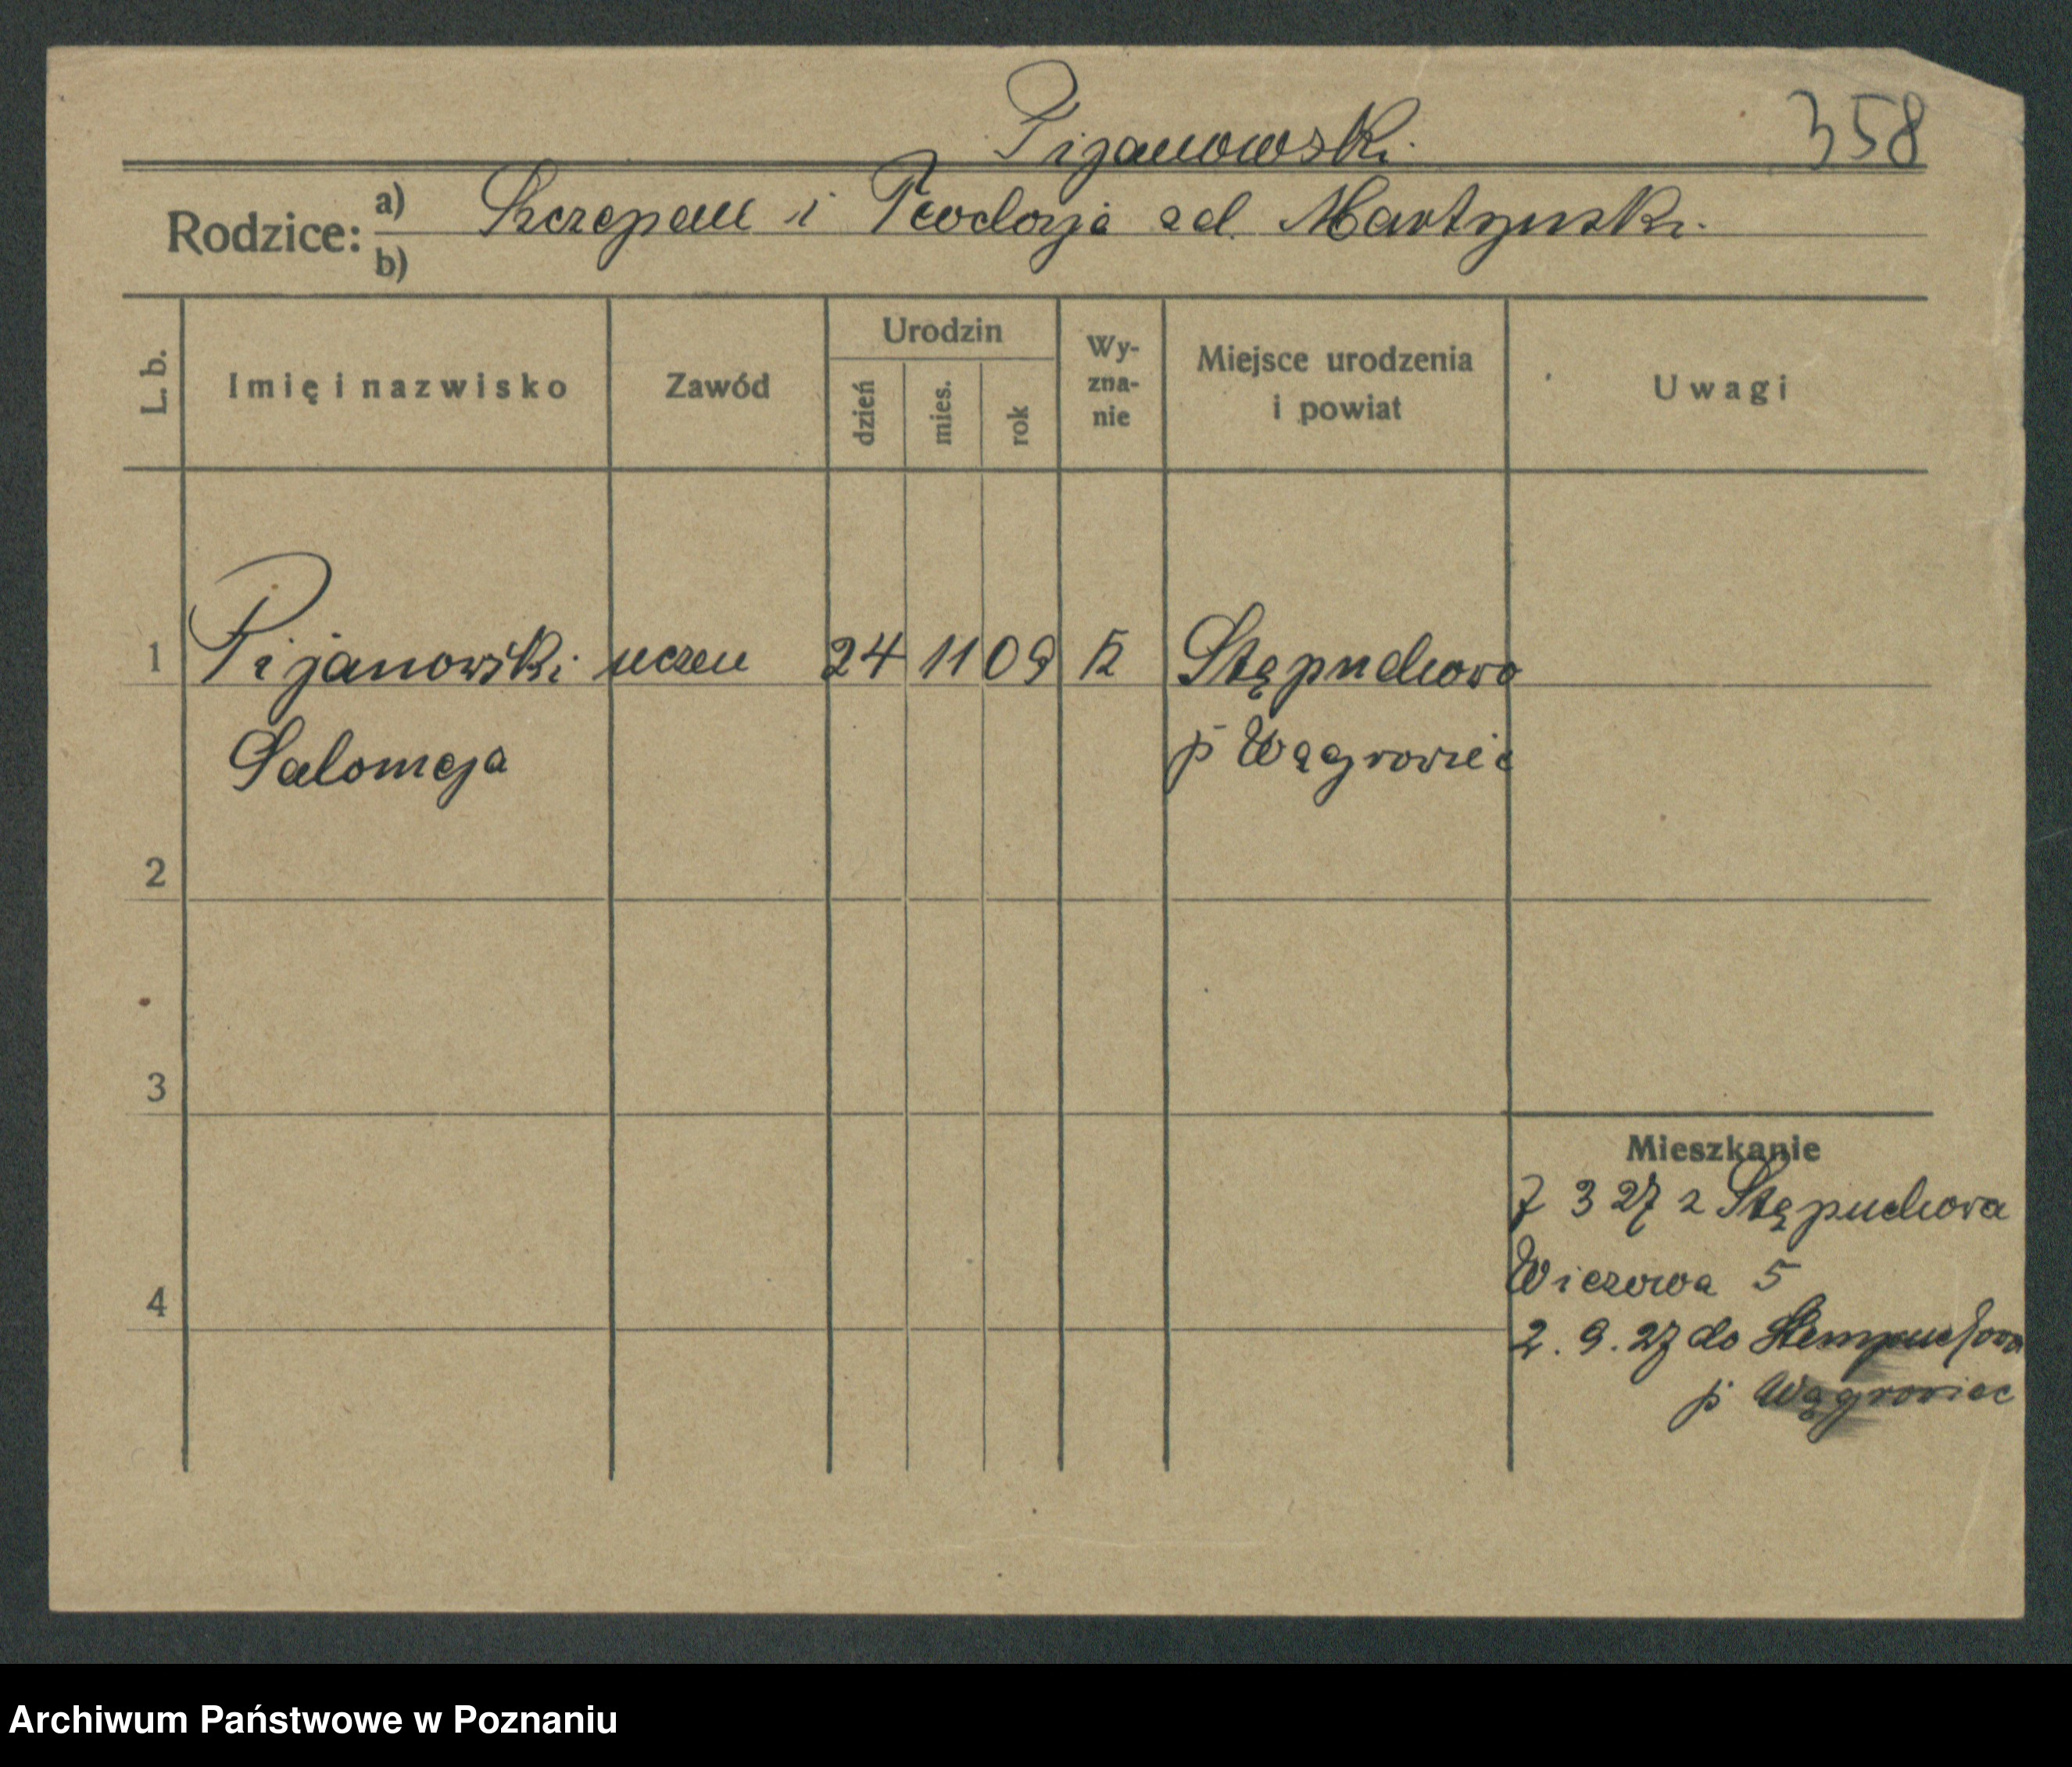 Pijanowski
358
Rodzice: a) Szczepan i Teodozja zd. Martynski
b)
L. b. Imię i nazwisko Zawód Urodzin dzień mies. rok Wy-zna-nie Miejsce urodzenia i powiat Uwagi
1 Pijanowski uczeń 24 11 09 k Stępuchowo
Salomeja p Wągrowiec
2
3
Mieszkanie
7 3 27 z Stępuchowa
Wiezowa 5
4
2.9.27 do Stempuchowa
p Wągrowiec
Archiwum Państwowe w Poznaniu